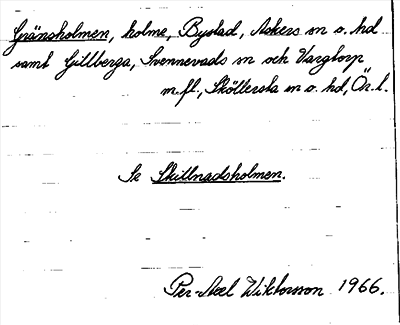 Gränsholmen, holme, Bystad, Askers sn o. hd
samt Gillberga, Svennevads sn och Vargtorp
m.fl., Sköllersta sn o. hd, Ör. l.
Se Skillnadsholmen.
Per-Axel Wiktorsson 1966.